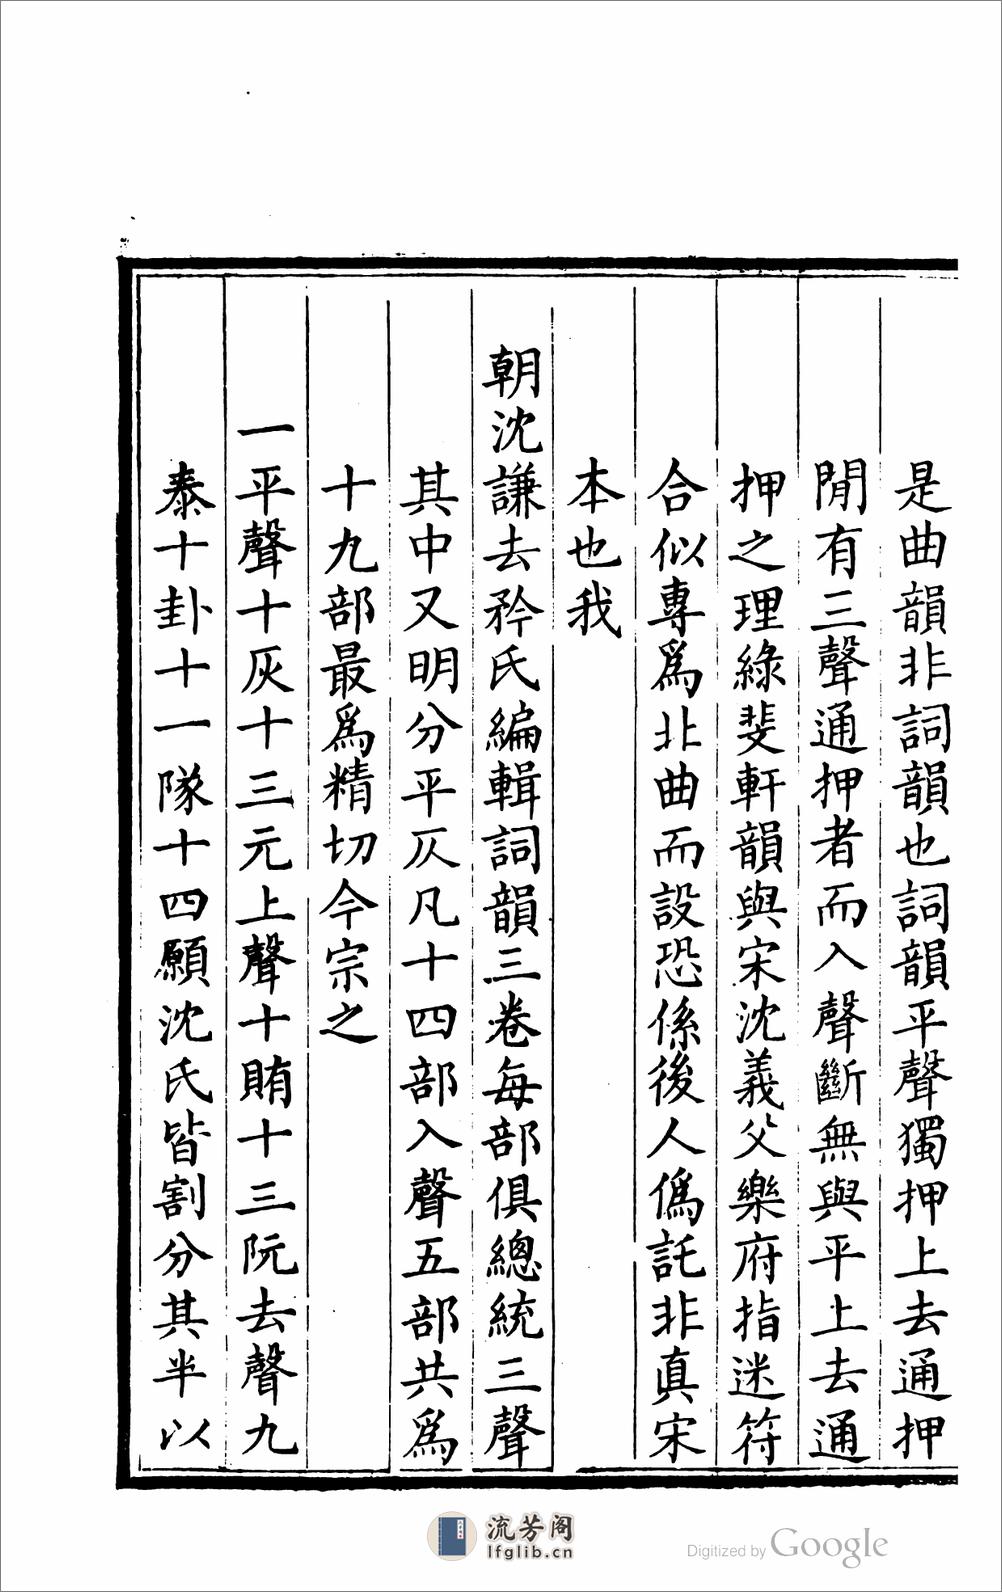 是曲韻非詞韻也詞韻平聲獨押上去通押
閒有三聲通押者而入聲斷無與平上去通
押之理綠斐軒韻與宋沈義父樂府指迷符
合似專爲北曲而設恐係後人僞託非真宋
本也我
朝沈謙去矜氏編輯詞韻三卷每部俱總統三聲
其中又明分平仄凡十四部入聲五部共爲
十九部最爲精切今宗之
一平聲十灰十三元上聲十賄十三阮去聲九
泰十卦十一隊十四願沈氏皆割分其半以
流芳阁
lfglib.cn
Digitized by Google